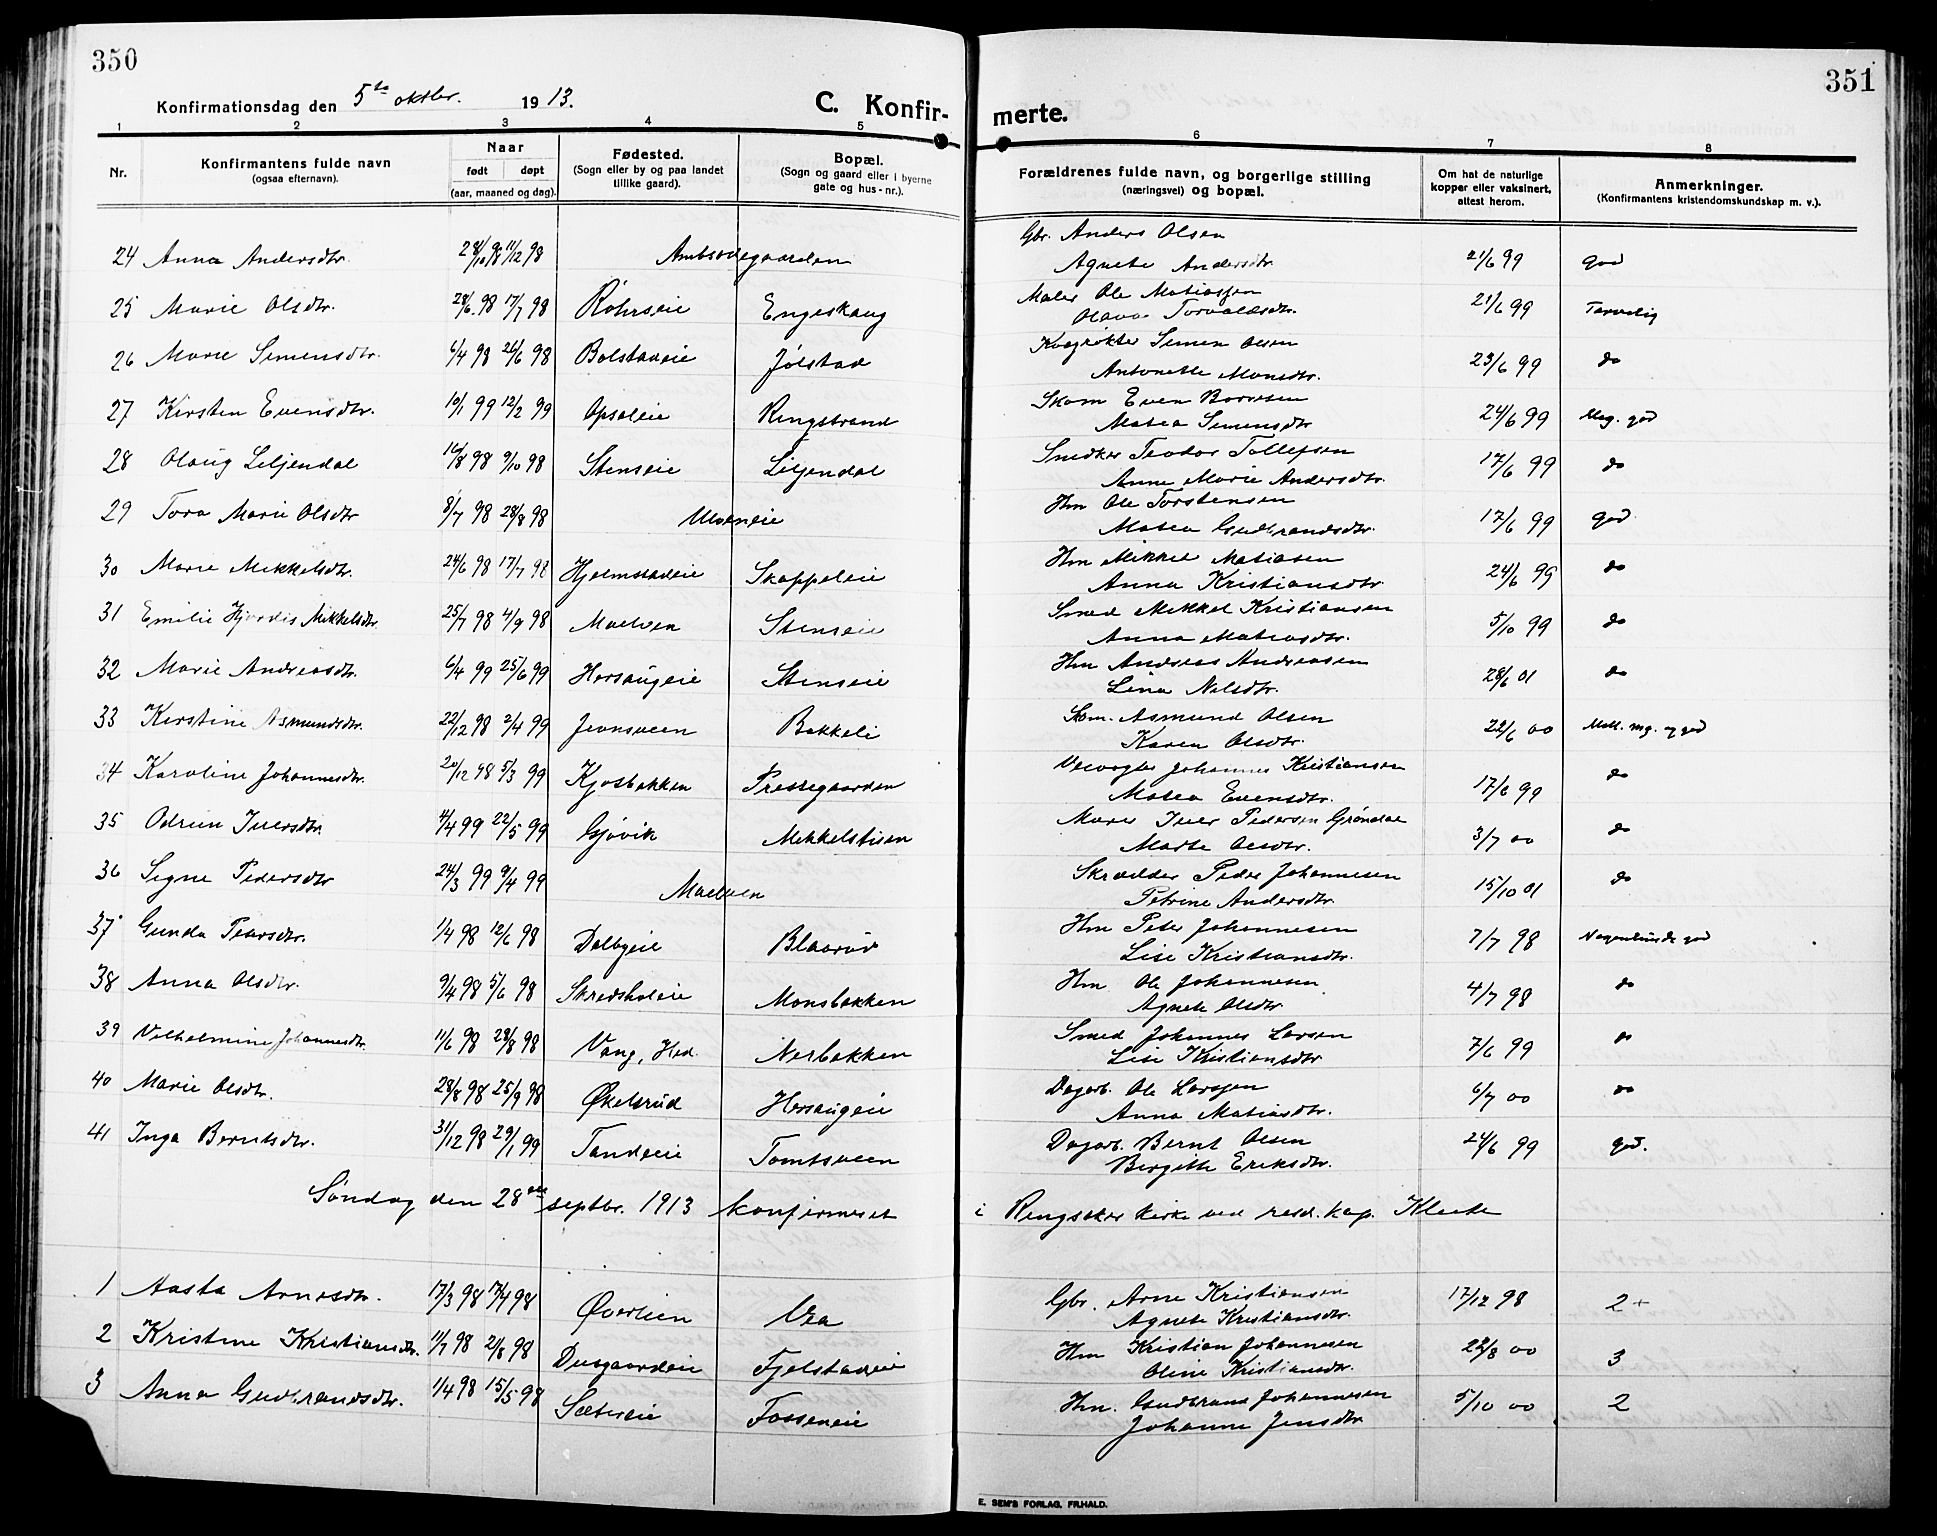 350
351
Konfirmationsdag den 5te oktbr. 1913.
C. Konfir-
merte.
1 2 3 4 5 6 7 8
Nr.
Konfirmantens fulde navn
(ogsaa efternavn).
Naar
født døpt
(aar, maaned og dag).
Fødested.
(Sogn eller by og paa landet
tillike gaard).
Bopæl.
(Sogn og gaard eller i byerne
gate og hus-nr.).
Forældrenes fulde navn, og borgerlige stilling
(næringsvei) og bopæl.
Om hat de naturlige
kopper eller vaksinert,
attest herom.
Anmerkninger.
(Konfirmantens kristendomskundskap m. v.).
Gbr. Anders Olsen
24 Anna Andersdtr. 28/10 98 11/12 98 Agnete Andersdtr. 21/6 99 god
Maler Ole Matiassen
25 Marie Olsdtr. 28/6 98 17/7 98 Røhrseie Engeskaug Olava Torvaldsdtr. 21/6 99 Tarvelig
Simen Olsen
26 Marie Simensdtr. 6/4 98 26/6 98 Bolstadeie Jølstad Antonette Monsdtr. 23/6 99 do
Skom Even
27 Kirsten Evensdtr. 10/1 99 12/2 99 Opsaleie Ringstrand Matea Simensdtr 24/6 99 Meg. god
Snedker Teodor Tollefsen
28 Olaug Liljendal 16/8 98 9/10 98 Stenseie Liljendal Anne Marie Andersdtr. 17/6 99 do
Hm Ole Torstensen
29 Tora Marie Olsdtr 8/7 98 28/8 98 Ulveneie Matea Gudbrandsdtr. 17/6 99 god
Hm Mikkel Matiasen
30 Marie Mikkelsdtr. 24/6 98 17/7 98 Hjelmstadeie Skappeleie Anna Kristiansdtr 24/6 99 do
Smed Mikkel Kristiansen
31 Emilie Hjørdis Mikkelsdtr. 25/7 98 4/9 98 Maelven Stenseie Anna Matiasdtr. 5/10 99 do
Hm Andreas Andreasen
32 Marie Andreasdtr. 6/4 99 25/6 99 Horsaugeie Stenseie Lina Nilsdtr. 28/6 01 do
Skom. Asmund Olsen
33 Kirstine Asmundsdtr. 22/12 98 2/4 99 Bakkeli Karen Olsdtr. 22/6 00 Mell. mg. og god
Johannes Kristiansen
34 Karoline Johannesdtr. 20/12 98 5/3 99 Kjosbakken Prestegaarden Matea Evensdtr. 17/6 99 do
Murer Iver Pedersen Grøndal
35 Iversdtr. 4/4 99 22/5 99 Gjøvik Mikkelstuen Marte Olsdtr. 3/7 00 do
Skrædder Peder Johannesen
36 Signe Pedersdtr 24/3 99 9/4 99 Maelven Petrine Andersdtr. 15/10 01 do
Hm Peter Johannesen
37 Gunda Petersdtr. 1/4 98 12/6 98 Dalbyeie Blaarød Lise Kristiansdtr. 7/7 98 Nogenlunde god
Hm Ole Johannesen
38 Anna Olsdtr. 9/4 98 5/6 98 Skredsholeie Monsbakken Agnete Olsdtr 4/7 98 do
Smed Johannes Larsen
39 Vilhelmine Johannesdtr. 11/6 98 28/8 98 Vang, Hed. Nerbakken Lise Kristiansdtr 7/6 99 do
Dagarb. Ole Larsen
40 Marie Olsdtr. 28/8 98 25/9 98 Økelsrud Horsaugeie Anna Matiasdtr. 6/7 00 do
Dagarb. Bernt Olsen
41 Inga Berntsdtr. 31/12 98 29/1 99 Tandeeie Tomtsveen Birgitte Eriksdtr. 24/6 99 god.
Søndag den 28de septbr. 1913 konfirmeret i Ringsaker kirke ved resd. kap. Klæte
Gbr. Arne Kristiansen
1 Aasta Arnesdtr. 17/3 98 17/4 98 Øverlien Vea Agnete Kristiansdtr. 17/12 98 2+
Hm Kristian Johannesen
2 Kristine Kristiansdtr. 11/7 98 21/8 98 Dusgaardeie Fjelstadeie Oline Kristiansdtr. 22/8 00 3
Hm. Gudbrand Johannesen
3 Anna Gudbrandsdtr. 1/4 98 15/5 98 Sætereie Fosseneie Johanne Jensdtr 5/10 00 2
E. SEM'S FORLAG, FR.HALD.